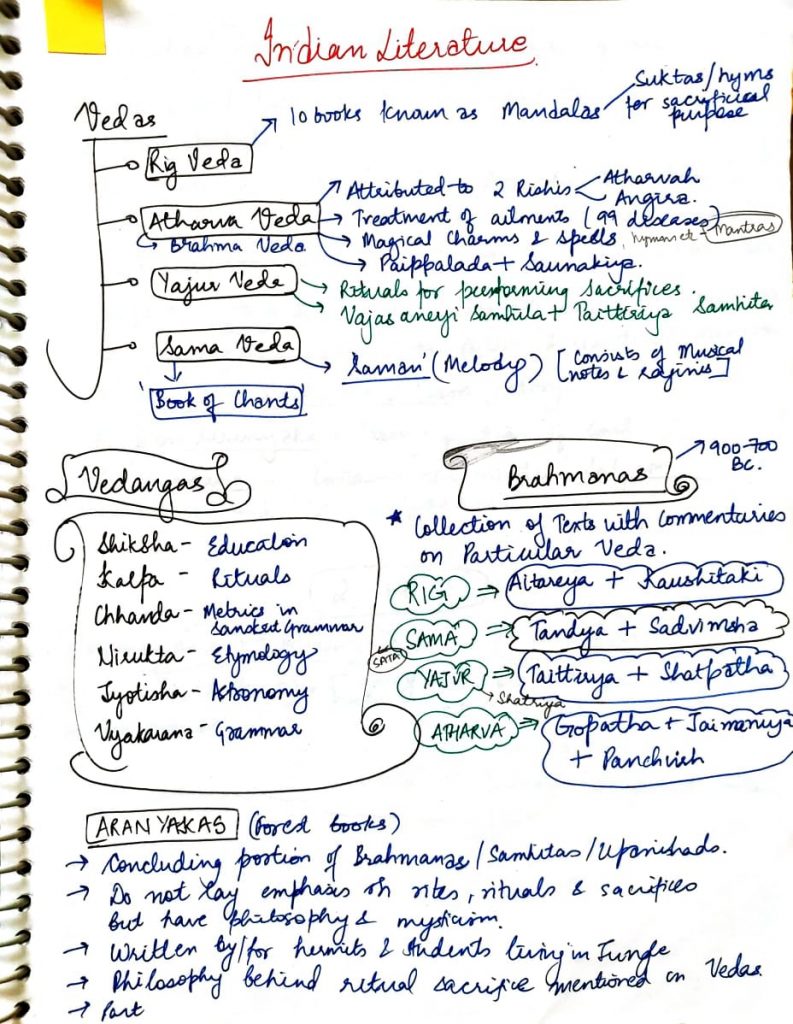 Indian Literature
Vedas
Rig Veda
10 books known as Mandalas
Suktas/hyms
for sacrificial
purpose
Atharva Veda
Brahma Veda
Attributed to 2 Rishis
Atharvah
Angira.
Treatment of ailments (99 diseases)
Magical Charms & Spells
Mantras
Paippalada + Saunakiya.
Yajur Veda
Rituals for performing sacrifices.
Vajasaneyi Samhita + Taittiriya Samhita
Sama Veda
'Book of Chants'
'Saman' (Melody) [Consists of Musical
notes & raginis]
Vedangas
Shiksha - Education
Kalpa - Rituals
Chhanda - Metrics in
Sanskrit Grammar
Nirukta - Etymology
Jyotisha - Astronomy
Vyakarana - Grammar
Brahmanas
900-700
BC.
* Collection of Texts with Commentaries
on Particular Veda.
RIG ⇒ Aitareya + Kaushitaki
SAMA ⇒ Tandya + Sadvimsha
SATA
YAJUR ⇒ Taittiriya + Shatpatha
Shatriya
ATHARVA ⇒ Gopatha + Jaimaniya
+ Panchvish
ARANYAKAS (Forest books)
→ Concluding portion of Brahmanas/Samhitas/Upanishads.
→ Do not lay emphasis on rites, rituals & sacrifices
but have philosophy & mysticism.
→ Written by/for hermits & students living in Jungle
→ Philosophy behind ritual sacrifice mentioned in Vedas.
→ Part